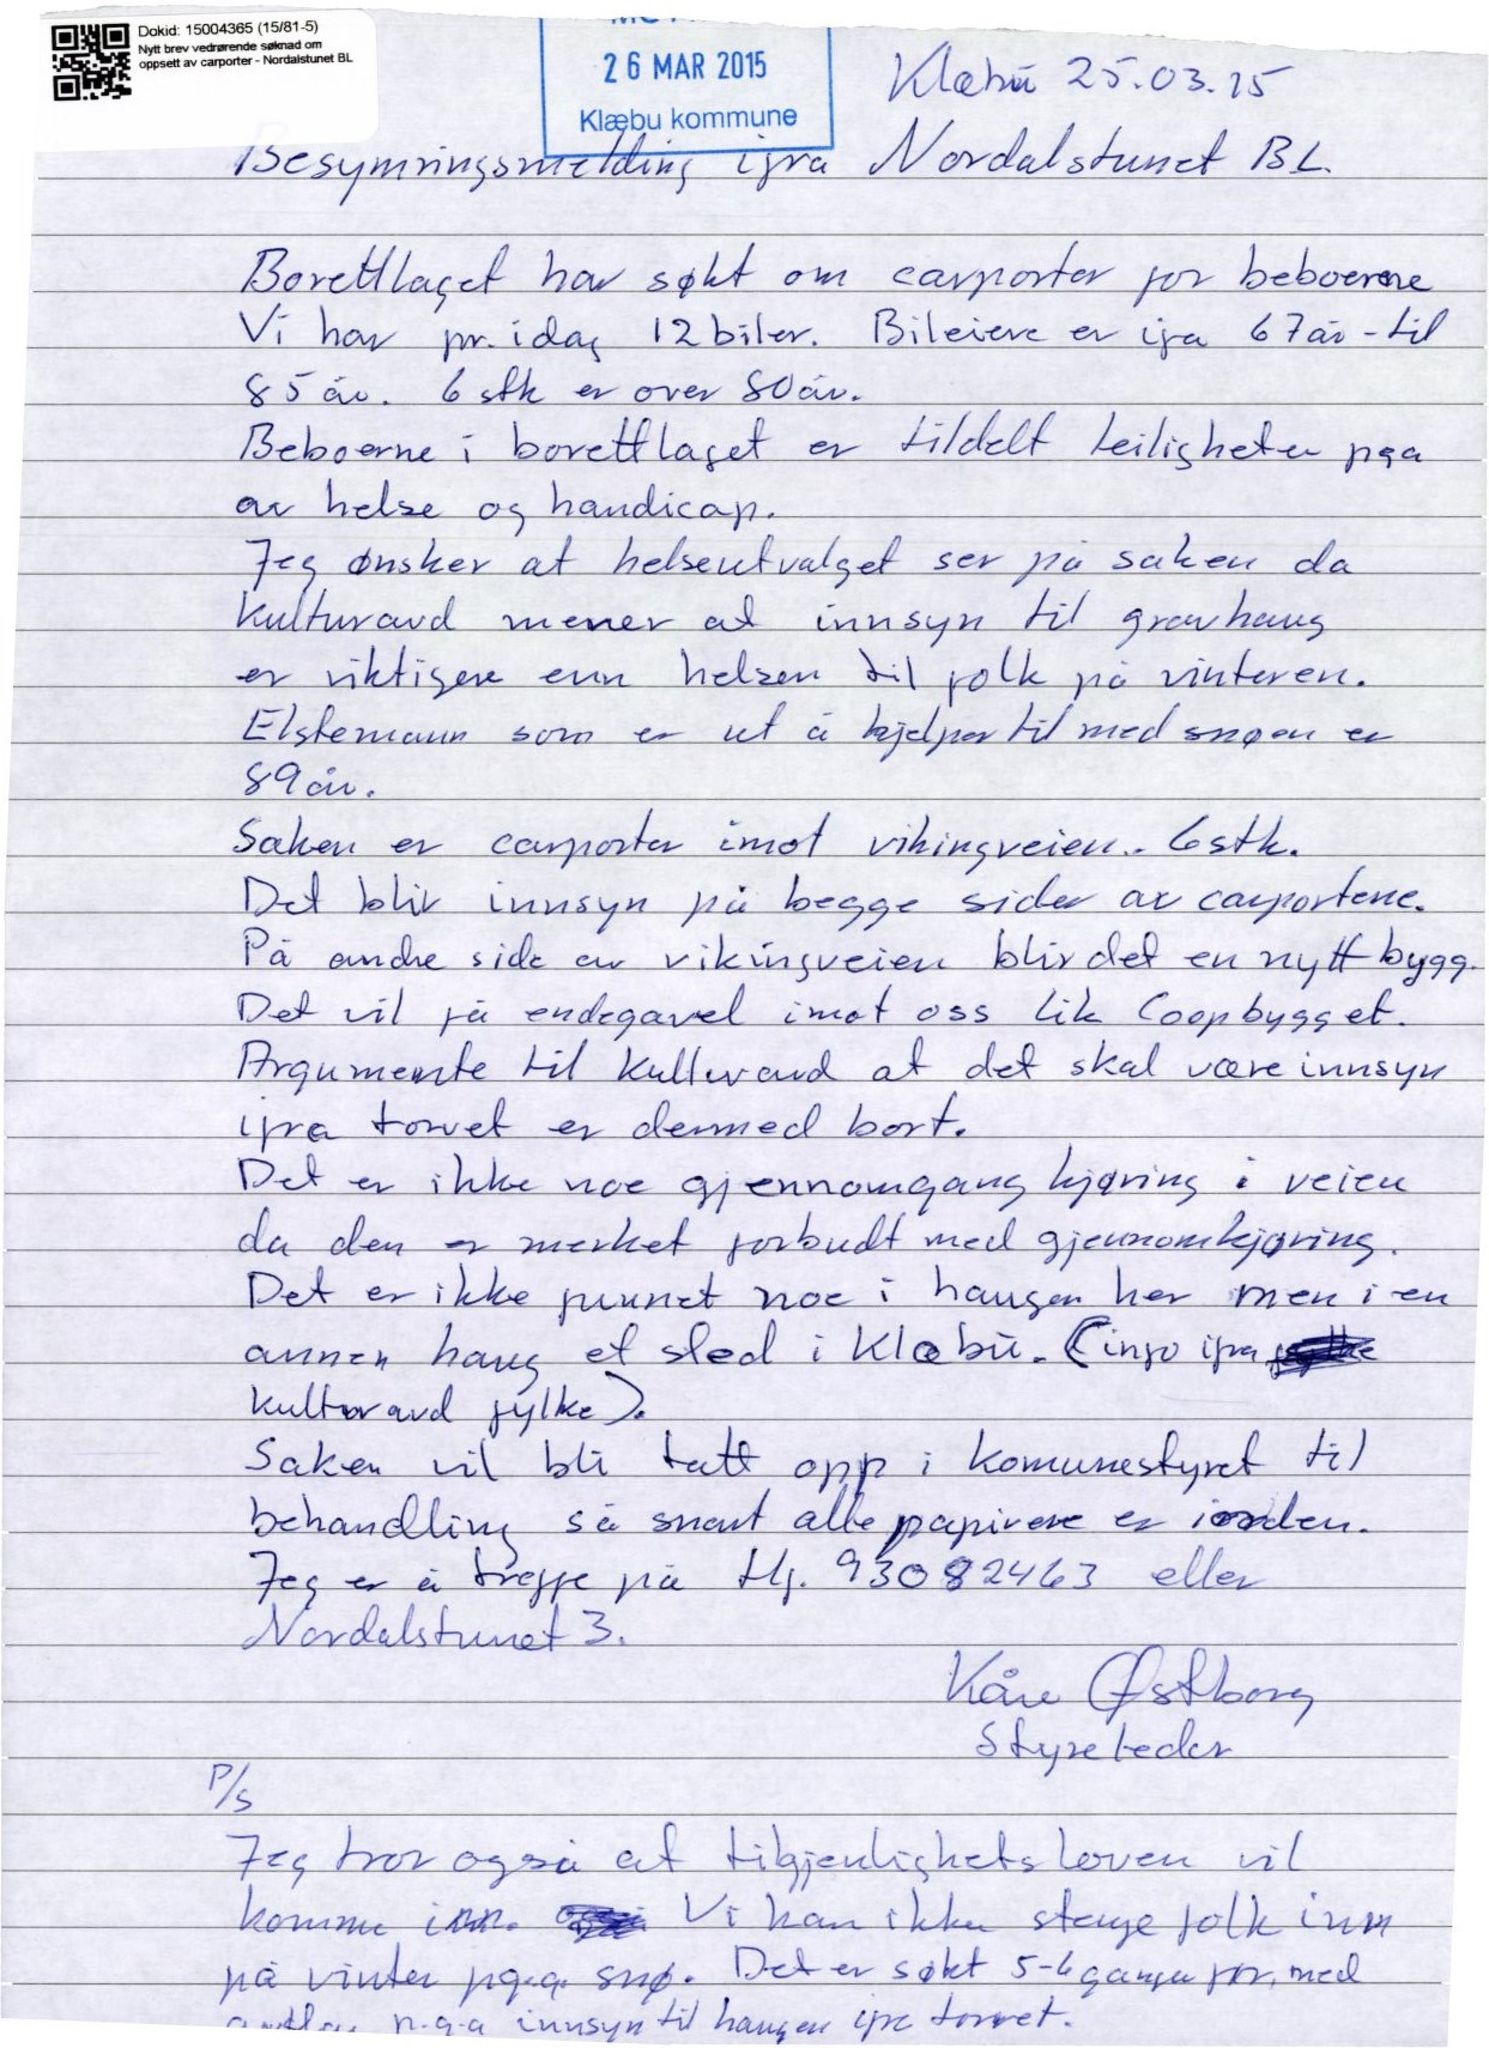 Dokid: 15004365 (15/81-5)
Nytt brev vedrørende søknad om
oppsett av carporter - Nordalstunet BL
26 MAR 2015
Klæbu kommune
Klæbu 25.03.15
Besymringsmelding ifra Nordalstunet BL.
Borettlaget har søkt om carporter for beboerene
Vi har pr. idag 12 biler. Bileiere er ifra 67 år - til
85 år. 6 stk er over 80 år.
Beboerne i borettlaget er tildelt leiligheter pga
av helse og handicap.
Jeg ønsker at helseutvalget ser på saken da
kulturavd mener at innsyn til gravhaug
er viktigere enn helsen til folk på vinteren.
Elstemann som er ut å hjelper til med snøen er
89 år.
Saken er carporter imot vikingveien. 6 stk.
Det blir innsyn på begge sider av carportene.
På andre side av vikingveien blir det en nytt bygg.
Det vil få endegavel imot oss lik Coopbygget.
Argumente til kulturavd at det skal være innsyn
ifra torvet er dermed bort.
Det er ikke noe gjennomgang kjøring i veien
da den er merket forbudt med gjennomkjøring.
Det er ikke funnet noe i haugen her men i en
annen haug et sted i Klæbu. (info ifra
kulturavd fylke).
Saken vil bli tatt opp i komunestyret til
behandling så snart alle papirene er iorden.
Jeg er å treffe på tlf. 93082463 eller
Nordalstunet 3.
Kåre Østborg
Styreleder
P/S
Jeg tror også at tilgjenlighetsloven vil
komme inn. Vi kan ikke stenge folk inn
på vinter pg.a. snø. Det er søkt 5-6 ganger før, med
p.g.a innsyn til haugen ifra torvet.